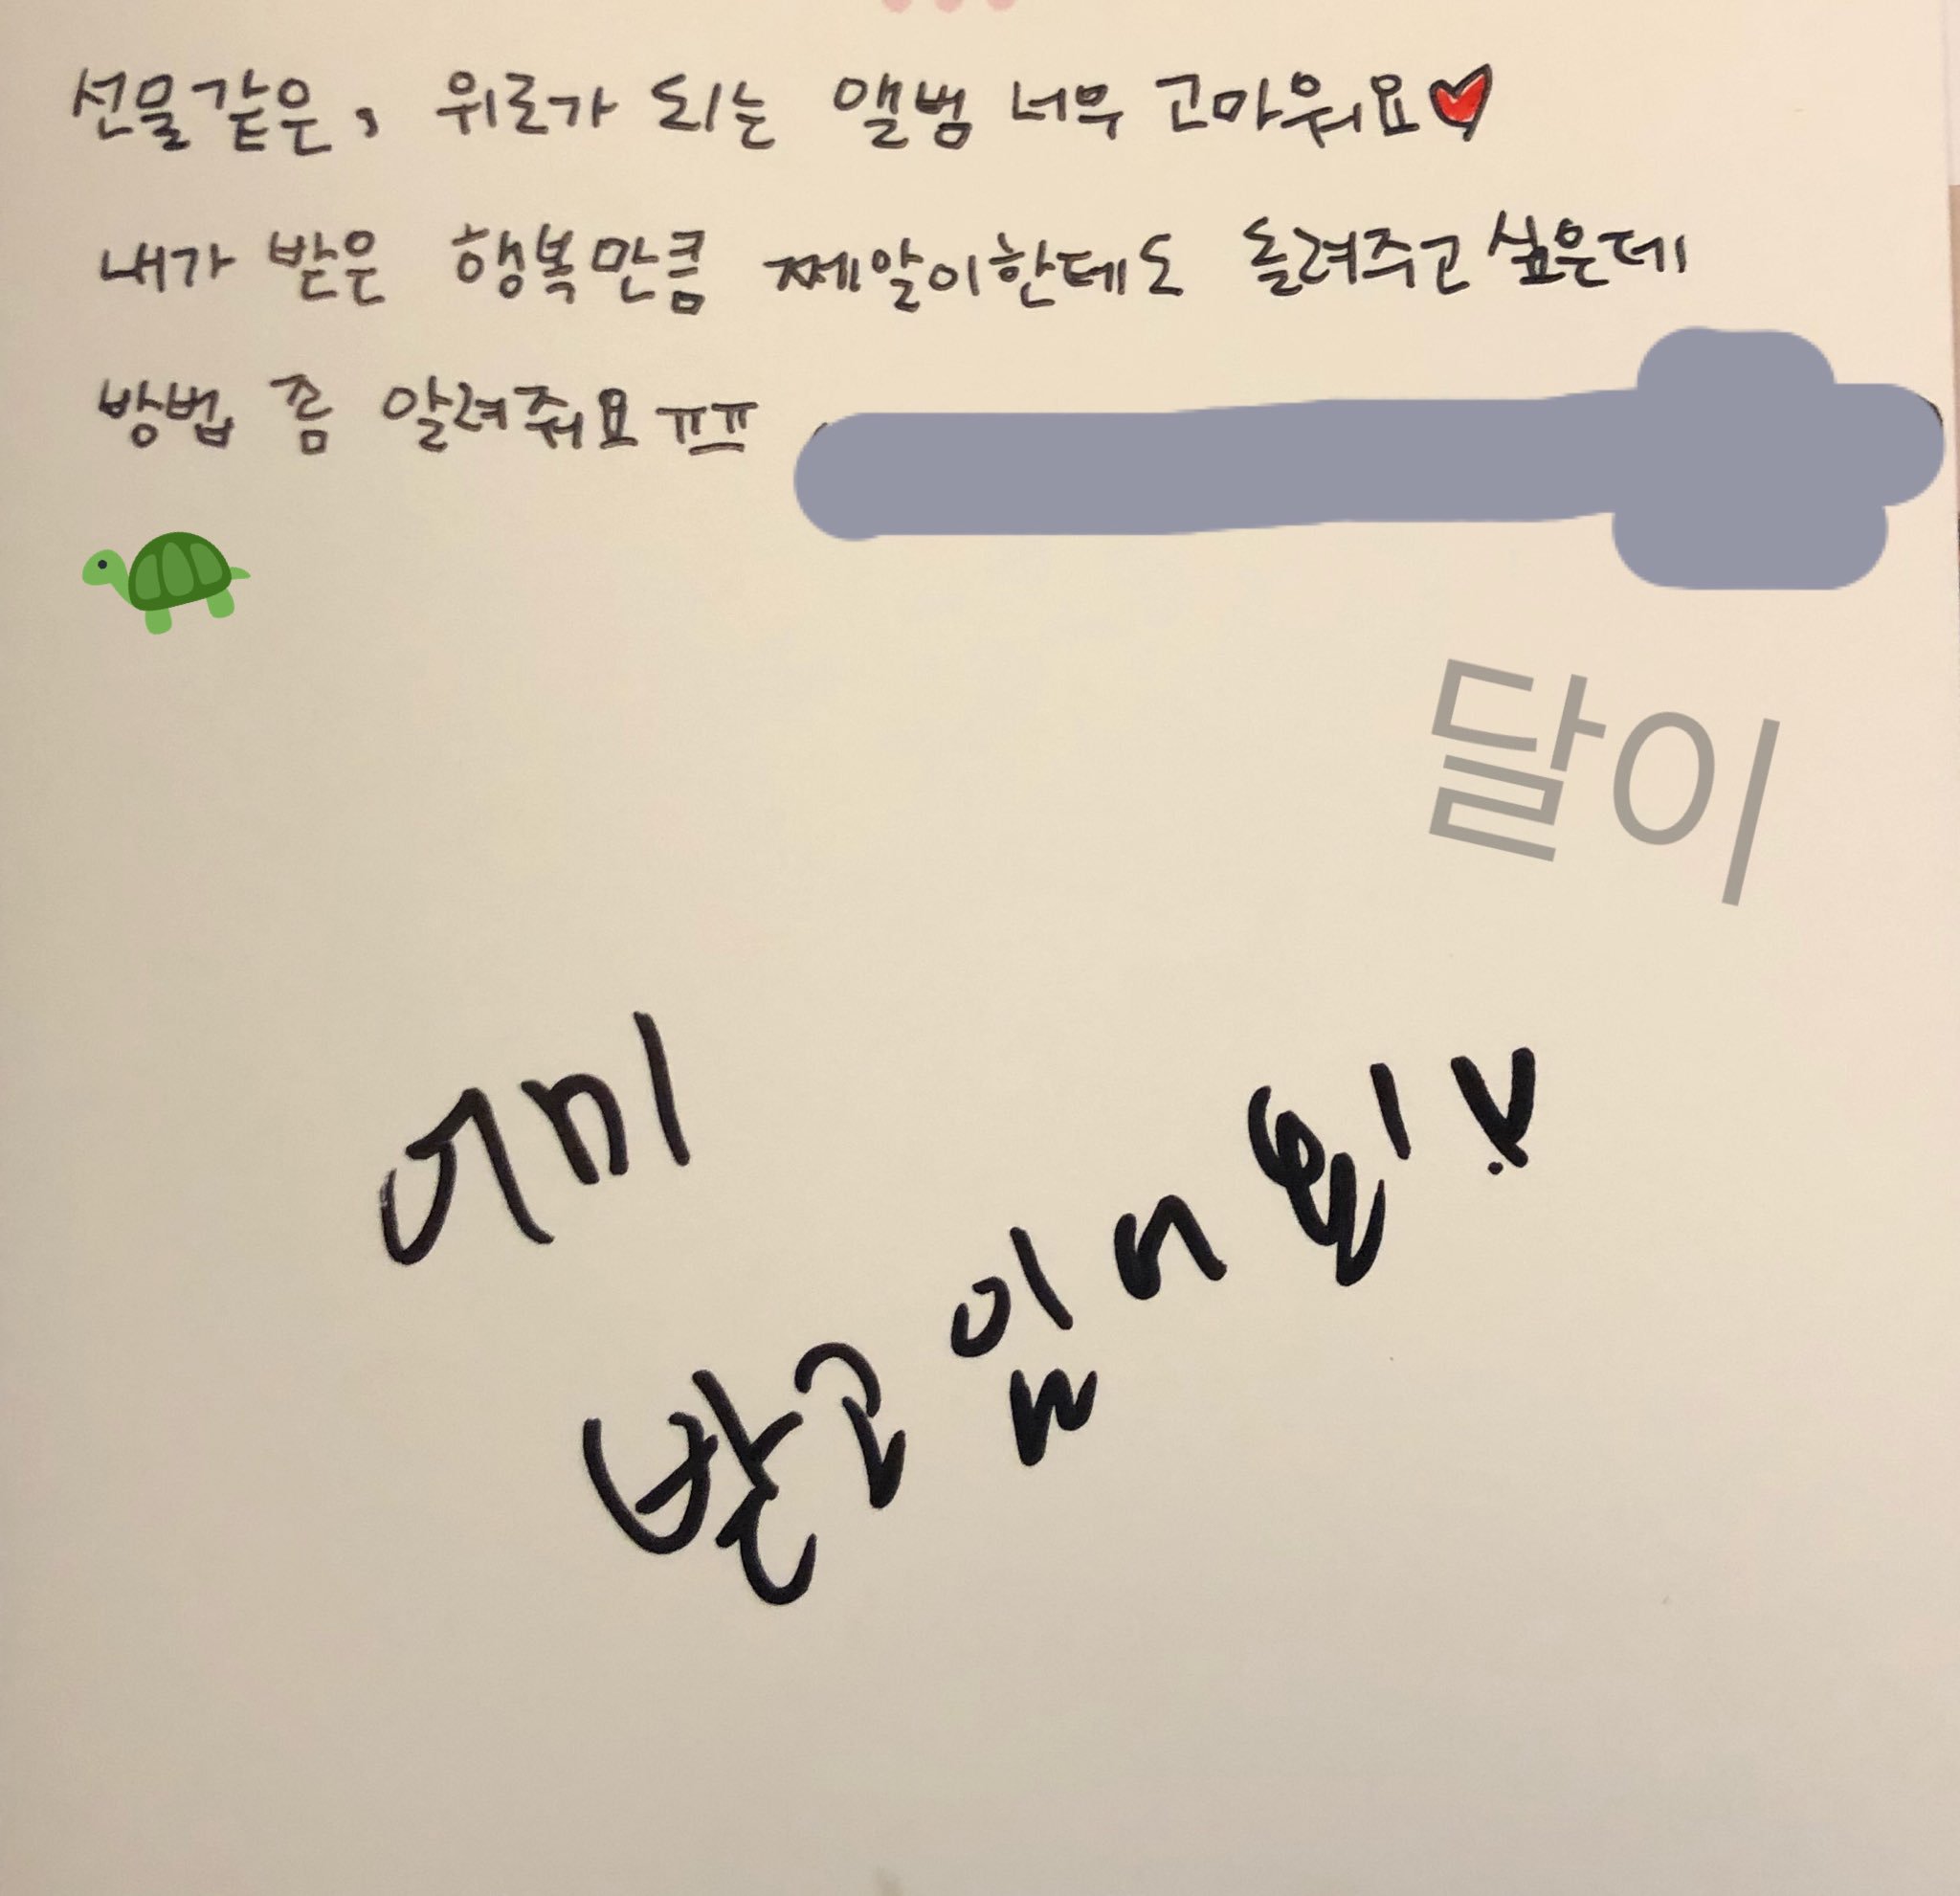 선물같은, 위로가 되는 앨범 너무 고마워요♥
내가 받은 행복만큼 쩨알이한테도 돌려주고싶은데
방법 좀 알려줘요 ㅠㅠ
달이
이미
받고 있어요!♥